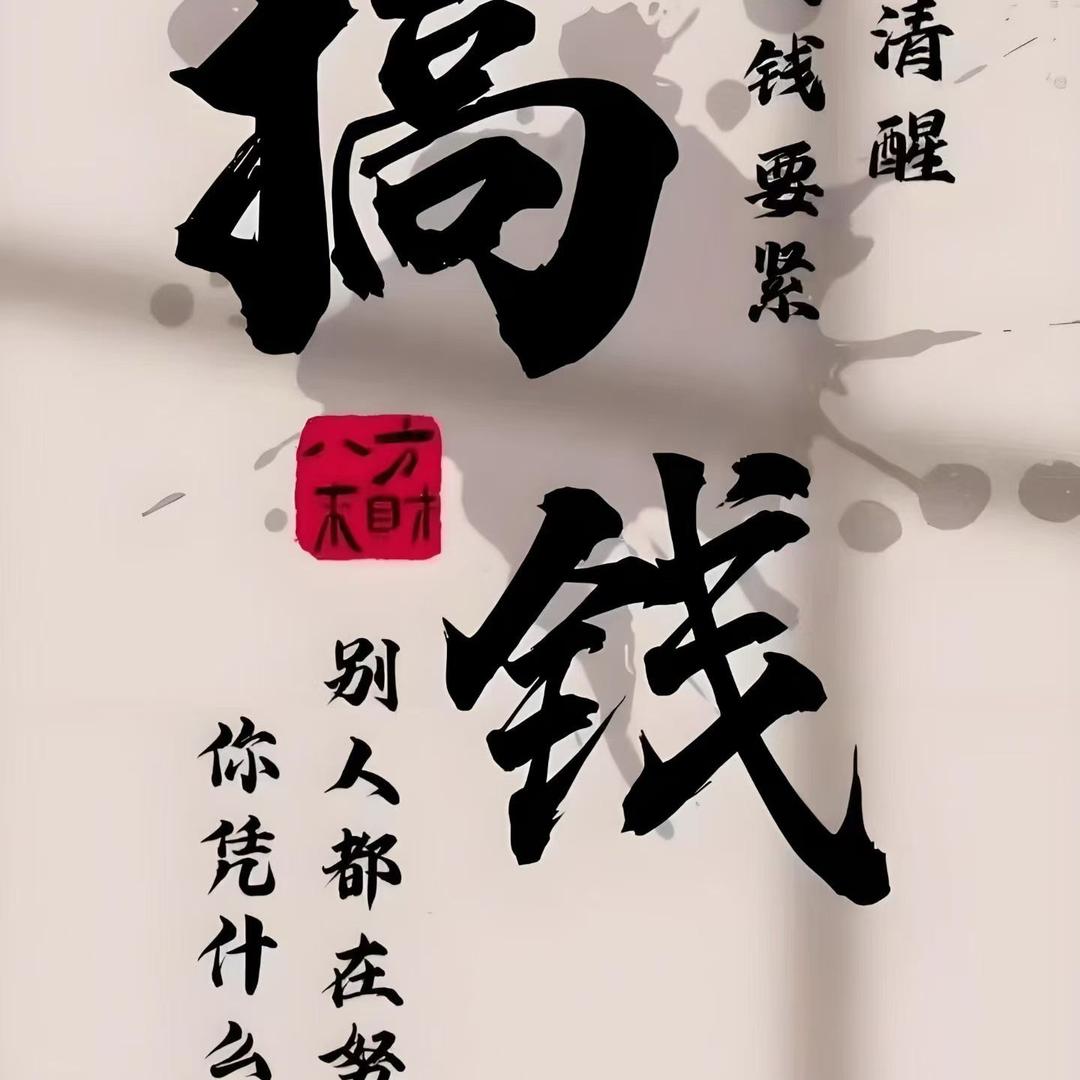 清醒
钱要紧
搞钱
八方来财
别人都在努
你凭什么